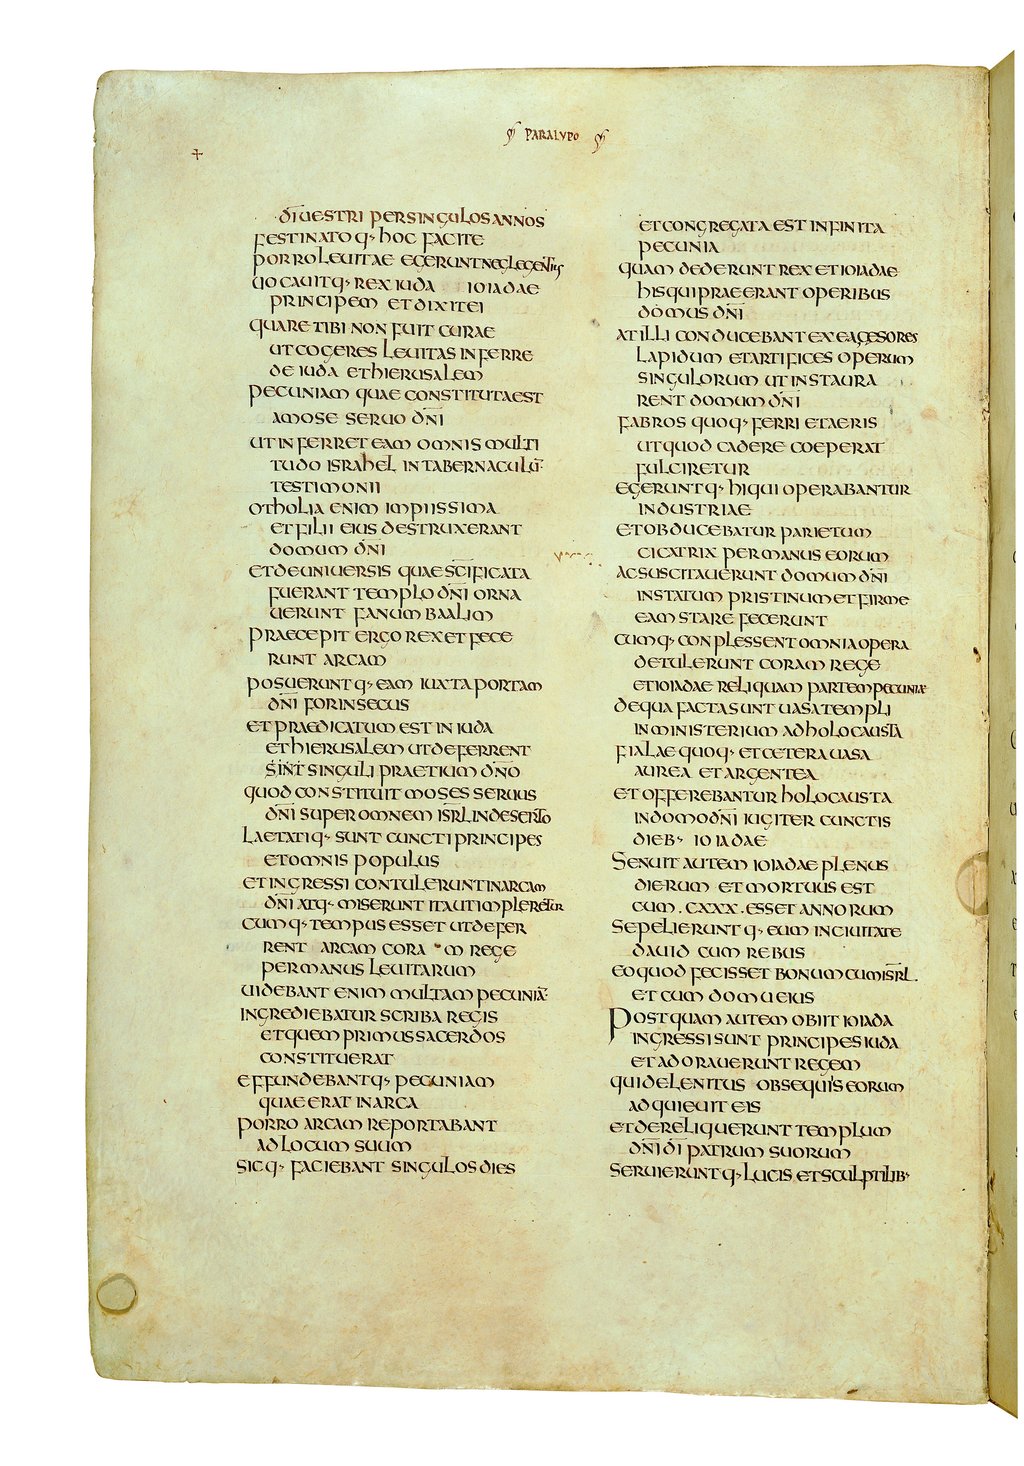 PARALYPO
+
DI UESTRI PER SINGULOS ANNOS
FESTINATO Q· HOC FACITE
PORRO LEUITAE EGERUNT NEGLEGENTIUS
UOCAUITQ· REX IUDA IOIADAE
PRINCIPEM ET DIXIT EI
QUARE TIBI NON FUIT CURAE
UT COGERES LEUITAS INFERRE
DE IUDA ET HIERUSALEM
PECUNIAM QUAE CONSTITUTA EST
A MOSE SERUO DN̄I
UT INFERRET EAM OMNIS MULTI
TUDO ISRAHEL IN TABERNACULŪ·
TESTIMONII
OTHOLIA ENIM IMPIISSIMA
ET FILII EIUS DESTRUXERANT
DOMUM DN̄I
ET DE UNIUERSIS QUAE SC̄IFICATA
FUERANT TEMPLO DN̄I ORNA
UERUNT FANUM BAALIM
PRAECEPIT ERGO REX ET FECE
RUNT ARCAM
POSUERUNTQ· EAM IUXTA PORTAM
DN̄I FORINSECUS
ET PRAEDICATUM EST IN IUDA
ET HIERUSALEM UT DEFERRENT
SINT SINGULI PRAETIUM DN̄O
QUOD CONSTITUIT MOSES SERUUS
DN̄I SUPER OMNEM ISR̄L IN DESERTO
LAETATIQ· SUNT CUNCTI PRINCIPES
ET OMNIS POPULUS
ET INGRESSI CONTULERUNT IN ARCAM
DN̄I ATQ· MISERUNT ITA UT IMPLERETUR
CUMQ· TEMPUS ESSET UT DEFER
RENT ARCAM CORA M REGE
PER MANUS LEUITARUM
UIDEBANT ENIM MULTAM PECUNIĀ·
INGREDIEBATUR SCRIBA REGIS
ET QUEM PRIMUS SACERDOS
CONSTITUERAT
EFFUNDEBANTQ· PECUNIAM
QUAE ERAT IN ARCA
PORRO ARCAM REPORTABANT
AD LOCUM SUUM
SICQ· FACIEBANT SINGULOS DIES
ET CONGREGATA EST INFINITA
PECUNIA
QUAM DEDERUNT REX ET IOIADAE
HIS QUI PRAEERANT OPERIBUS
DOMUS DN̄I
AT ILLI CONDUCEBANT EX EA CESORES
LAPIDUM ET ARTIFICES OPERUM
SINGULORUM UT INSTAURA
RENT DOMUM DN̄I
FABROS QUOQ· FERRI ET AERIS
UT QUOD CADERE COEPERAT
FULCIRETUR
EGERUNTQ· HI QUI OPERABANTUR
INDUSTRIAE
ET OBDUCEBATUR PARIETUM
CICATRIX PER MANUS EORUM
AC SUSCITAUERUNT DOMUM DN̄I
IN STATUM PRISTINUM ET FIRME
EAM STARE FECERUNT
CUMQ· CONPLESSENT OMNIA OPERA
DETULERUNT CORAM REGE
ET IOIADAE RELIQUAM PARTEM PECUNIAE
DE QUA FACTA SUNT UASA TEMPLI
IN MINISTERIUM AD HOLOCAUSTA
FIALAE QUOQ· ET CETERA UASA
AUREA ET ARGENTEA
ET OFFEREBANTUR HOLOCAUSTA
IN DOMO DN̄I IUGITER CUNCTIS
DIEB· IOIADAE
SENUIT AUTEM IOIADAE PLENUS
DIERUM ET MORTUUS EST
CUM .CXXX. ESSET ANNORUM
SEPELIERUNTQ· EUM IN CIUITATE
DAUID CUM REBUS
EO QUOD FECISSET BONUM CUM ISR̄L.
ET CUM DOMU EIUS
POSTQUAM AUTEM OBIIT IOIADA
INGRESSI SUNT PRINCIPES IUDA
ET ADORAUERUNT REGEM
QUI DELENITUS OBSEQUIIS EORUM
ADQUIEUIT EIS
ET DERELIQUERUNT TEMPLUM
DN̄I DI PATRUM SUORUM
SERUIERUNTQ· LUCIS ET SCULPTILIB·